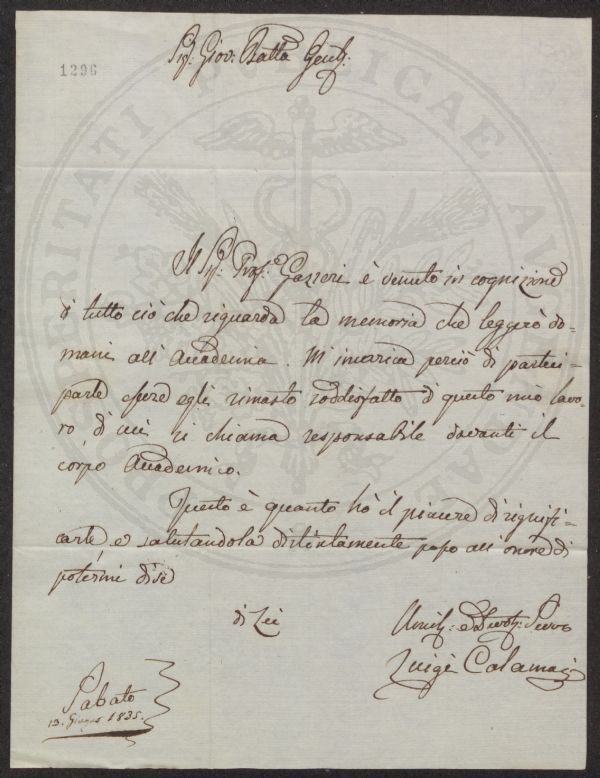 1296
Sig: Giov: Batta Gentil:
Il Sig: Prof: Gazzeri è venuto in cognizione
di tutto ciò che riguarda la memoria che leggerò do-
mani all'Accademia. M'incarica perciò di parteci-
parle essere egli rimasto soddisfatto di questo mio lavo-
ro, di cui si chiama responsabile davanti il
corpo Accademico.
Questo è quanto hò il piacere di signifi-
carle e salutandola distintamente passo all'onore di
potermi dire
di Lei
Umil: e Devot: Servo
Luigi Calamai
Sabato
13. Giugno 1835.
PROSPERITATI PUBLICAE AUGENDAE